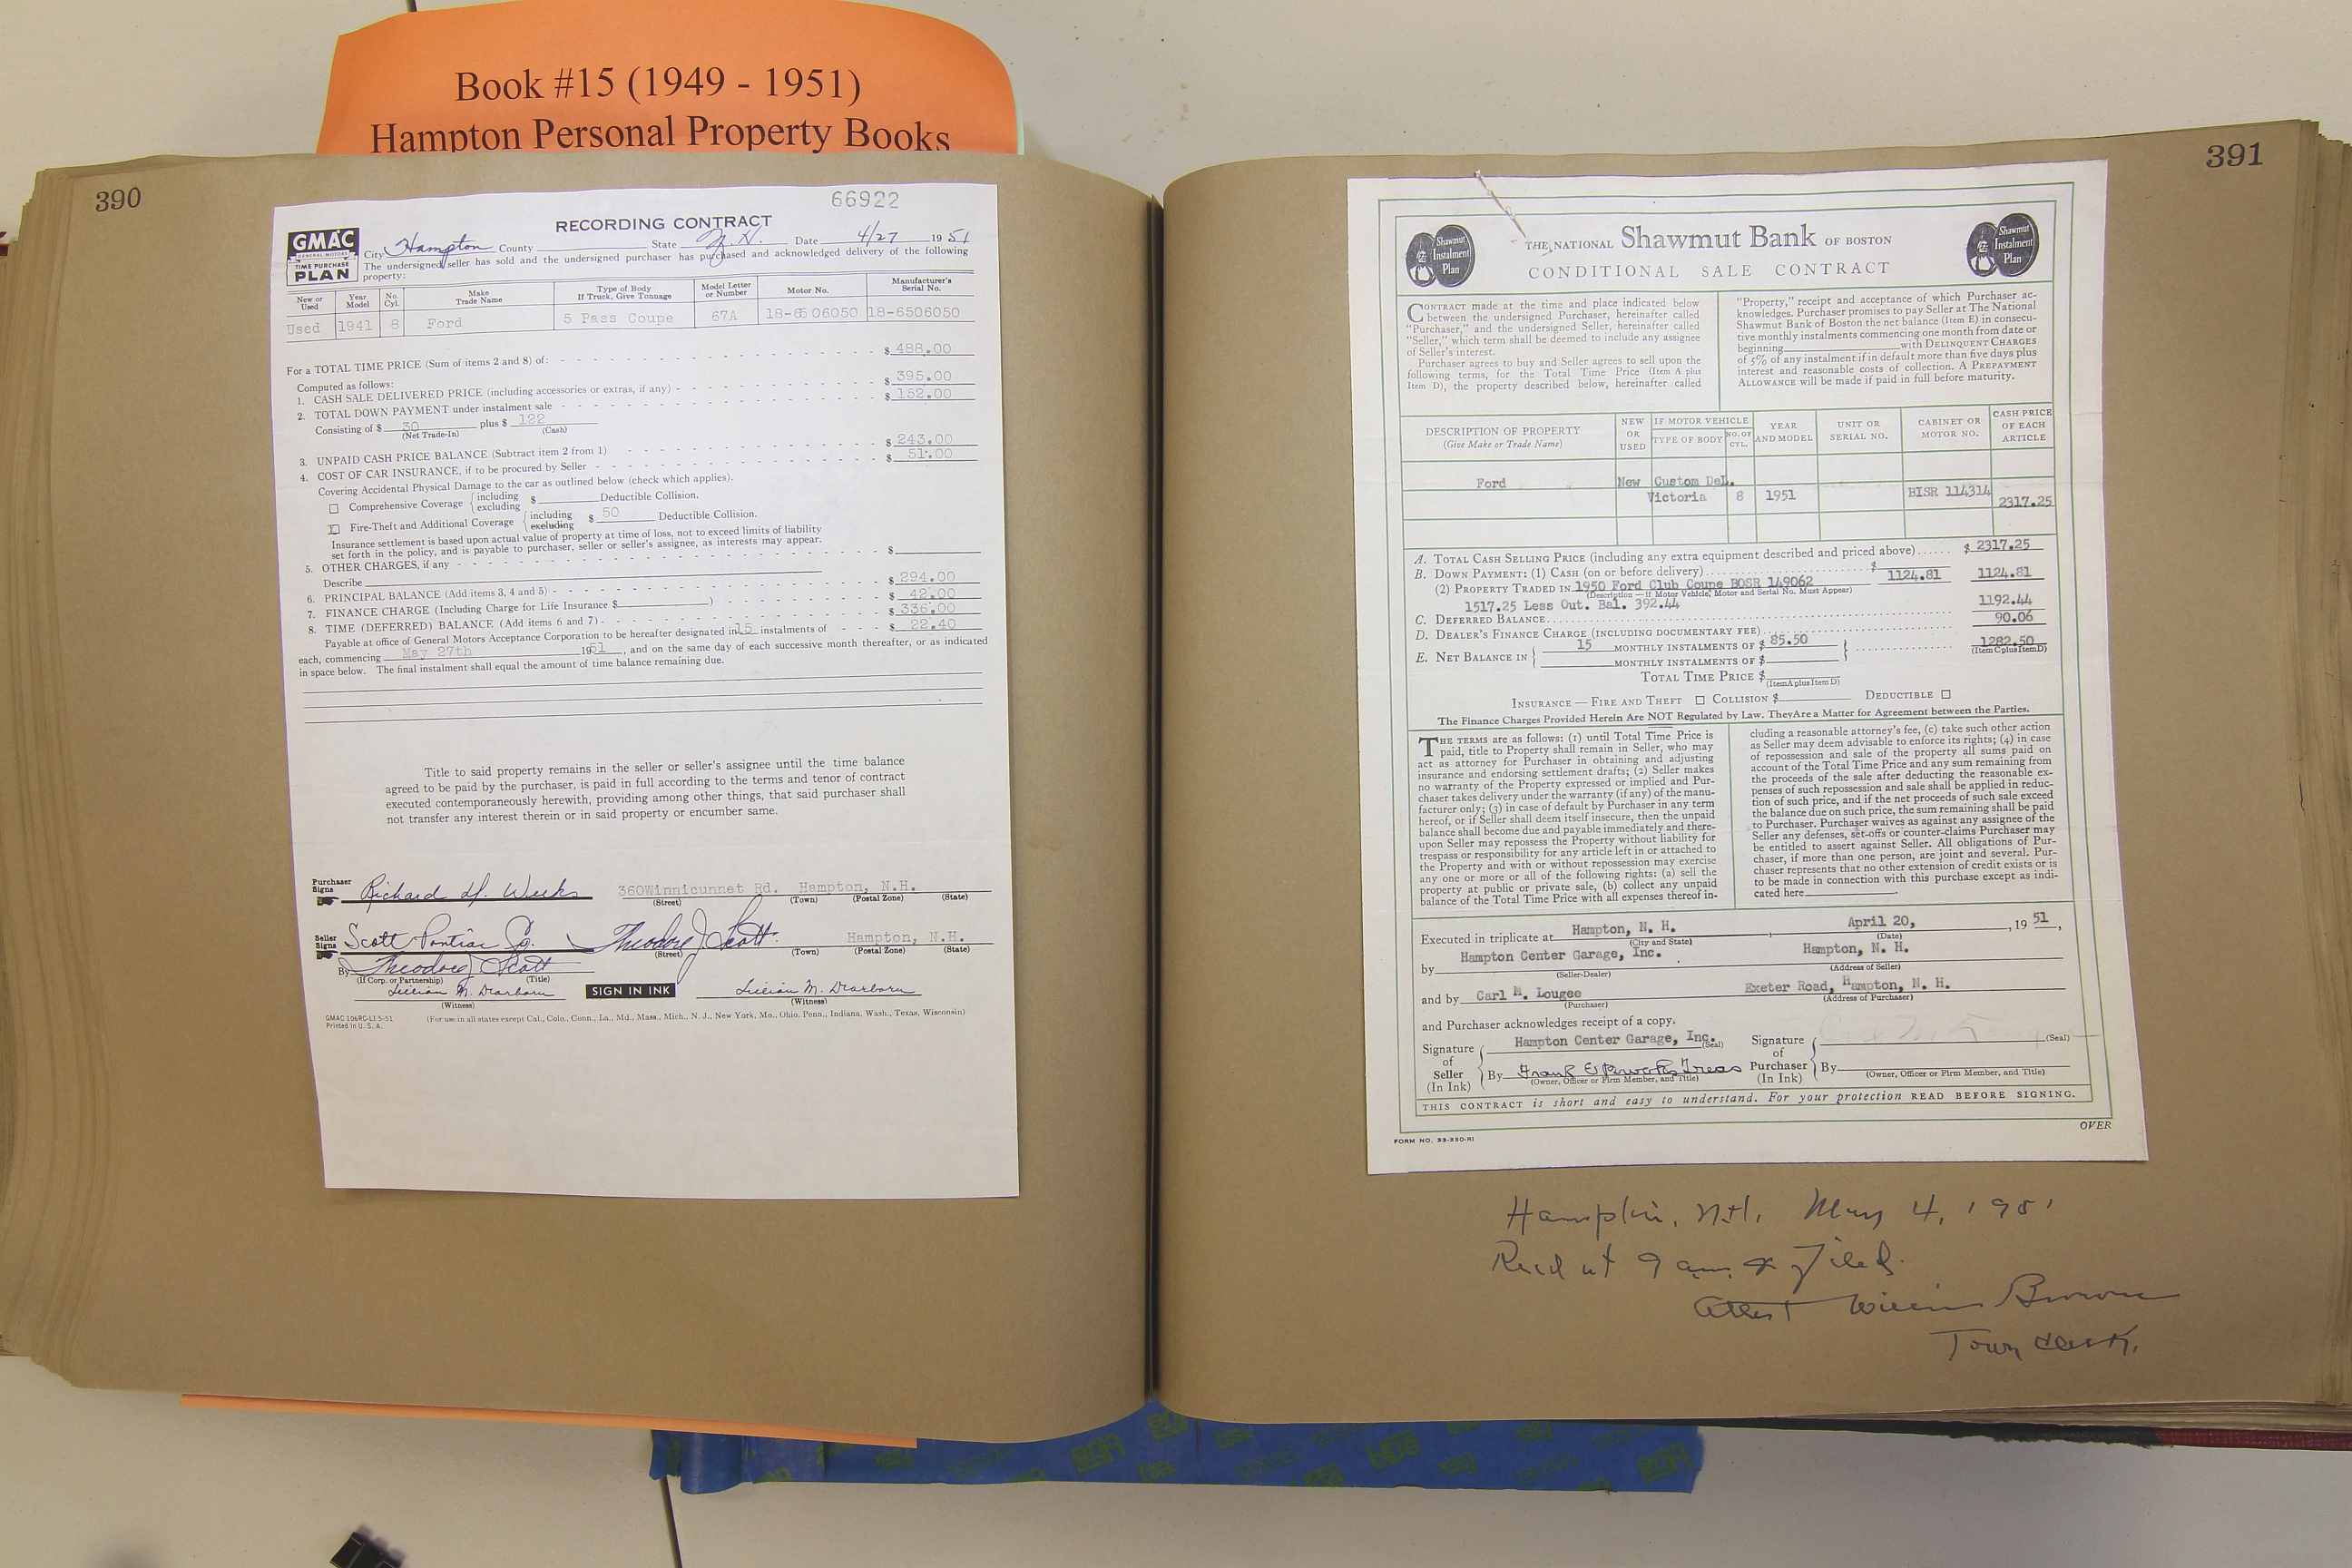 Book #15 (1949 - 1951)
Hampton Personal Property Books
390
66922
RECORDING CONTRACT
GMAC
GENERAL MOTORS
TIME PURCHASE
PLAN
City Hampton County State N.H. Date 4/27 1951
The undersigned seller has sold and the undersigned purchaser has purchased and acknowledged delivery of the following
property:
New or Used Year Model No. Cyl. Make Trade Name Type of Body If Truck, Give Tonnage Model Letter or Number Motor No. Manufacturer's Serial No.
Used 1941 8 Ford 5 Pass Coupe 67A 18-6506050 18-6506050
For a TOTAL TIME PRICE (Sum of items 2 and 8) of: $ 488.00
Computed as follows:
1. CASH SALE DELIVERED PRICE (including accessories or extras, if any) $ 395.00
2. TOTAL DOWN PAYMENT under instalment sale $ 152.00
Consisting of $ 30 plus $ 122
(Net Trade-In) (Cash)
3. UNPAID CASH PRICE BALANCE (Subtract item 2 from 1) $ 243.00
4. COST OF CAR INSURANCE, if to be procured by Seller $ 51.00
Covering Accidental Physical Damage to the car as outlined below (check which applies).
Comprehensive Coverage { including excluding $ Deductible Collision.
Fire-Theft and Additional Coverage { including excluding $ 50 Deductible Collision.
Insurance settlement is based upon actual value of property at time of loss, not to exceed limits of liability
set forth in the policy, and is payable to purchaser, seller or seller's assignee, as interests may appear.
5. OTHER CHARGES, if any $
Describe
6. PRINCIPAL BALANCE (Add items 3, 4 and 5) $ 294.00
7. FINANCE CHARGE (Including Charge for Life Insurance $ ) $ 42.00
8. TIME (DEFERRED) BALANCE (Add items 6 and 7) $ 336.00
Payable at office of General Motors Acceptance Corporation to be hereafter designated in 15 instalments of $ 22.40
each, commencing May 27th 1951, and on the same day of each successive month thereafter, or as indicated
in space below. The final instalment shall equal the amount of time balance remaining due.
Title to said property remains in the seller or seller's assignee until the time balance
agreed to be paid by the purchaser, is paid in full according to the terms and tenor of contract
executed contemporaneously herewith, providing among other things, that said purchaser shall
not transfer any interest therein or in said property or encumber same.
Purchaser Signs Richard H. Weeks 360Winnicunnet Rd. Hampton, N.H.
(Street) (Town) (Postal Zone) (State)
Seller Signs Scott Pontiac Co. Theodore J. Scott Hampton, N.H.
(Street) (Town) (Postal Zone) (State)
By Theodore J Scott
(If Corp. or Partnership) (Title)
Lillian M. Dearborn SIGN IN INK Lillian M. Dearborn
(Witness) (Witness)
GMAC 106RC-L1 5-51
Printed in U. S. A.
(For use in all states except Cal., Colo., Conn., La., Md., Mass., Mich., N. J., New York, Mo., Ohio, Penn., Indiana, Wash., Texas, Wisconsin)
391
Shawmut Instalment Plan
THE NATIONAL Shawmut Bank OF BOSTON
Shawmut Instalment Plan
CONDITIONAL SALE CONTRACT
CONTRACT made at the time and place indicated below
between the undersigned Purchaser, hereinafter called
"Purchaser," and the undersigned Seller, hereinafter called
"Seller," which term shall be deemed to include any assignee
of Seller's interest.
Purchaser agrees to buy and Seller agrees to sell upon the
following terms, for the Total Time Price (Item A plus
Item D), the property described below, hereinafter called
"Property," receipt and acceptance of which Purchaser ac-
knowledges. Purchaser promises to pay Seller at The National
Shawmut Bank of Boston the net balance (Item E) in consecu-
tive monthly instalments commencing one month from date or
beginning with DELINQUENT CHARGES
of 5% of any instalment if in default more than five days plus
interest and reasonable costs of collection. A PREPAYMENT
ALLOWANCE will be made if paid in full before maturity.
DESCRIPTION OF PROPERTY (Give Make or Trade Name) NEW OR USED IF MOTOR VEHICLE TYPE OF BODY NO. OF CYL. YEAR AND MODEL UNIT OR SERIAL NO. CABINET OR MOTOR NO. CASH PRICE OF EACH ARTICLE
Ford New Custom Del.
Victoria 8 1951 B1SR 114314 2317.25
A. TOTAL CASH SELLING PRICE (including any extra equipment described and priced above) $ 2317.25
B. DOWN PAYMENT: (1) CASH (on or before delivery) $
(2) PROPERTY TRADED IN 1950 Ford Club Coupe BOSR 149062 1124.81 1124.81
(Description — if Motor Vehicle, Motor and Serial No. Must Appear)
1517.25 Less Out. Bal. 392.44
C. DEFERRED BALANCE 1192.44
D. DEALER'S FINANCE CHARGE (INCLUDING DOCUMENTARY FEE) 90.06
E. NET BALANCE IN { 15 MONTHLY INSTALMENTS OF $ 85.50 } 1282.50
MONTHLY INSTALMENTS OF $ (Item C plus Item D)
TOTAL TIME PRICE $
(Item A plus Item D)
INSURANCE — FIRE AND THEFT COLLISION $ DEDUCTIBLE
The Finance Charges Provided Herein Are NOT Regulated by Law. They Are a Matter for Agreement between the Parties.
THE TERMS are as follows: (1) until Total Time Price is
paid, title to Property shall remain in Seller, who may
act as attorney for Purchaser in obtaining and adjusting
insurance and endorsing settlement drafts; (2) Seller makes
no warranty of Property expressed or implied and Pur-
chaser takes delivery under the warranty (if any) of the manu-
facturer only; (3) in case of default by Purchaser in any term
hereof, or if Seller shall deem itself insecure, then the unpaid
balance shall become due and payable immediately and there-
upon Seller may repossess the Property without liability for
trespass or responsibility for any article left in or attached to
the Property and with or without repossession may exercise
any one or more or all of the following rights: (a) sell the
property at public or private sale, (b) collect any unpaid
balance of the Total Time Price with all expenses thereof in-
cluding a reasonable attorney's fee, (c) take such other action
as Seller may deem advisable to enforce its rights; (4) in case
of repossession and sale of the property all sums paid on
account of the Total Time Price and any sum remaining from
the proceeds of the sale after deducting the reasonable ex-
penses of such repossession and sale shall be applied in reduc-
tion of such price, and if the net proceeds of such sale exceed
the balance due on such price, the sum remaining shall be paid
to Purchaser. Purchaser waives as against any assignee of the
Seller any defenses, set-offs or counter-claims Purchaser may
be entitled to assert against Seller. All obligations of Pur-
chaser, if more than one person, are joint and several. Pur-
chaser represents that no other extension of credit exists or is
to be made in connection with this purchase except as indi-
cated here
Executed in triplicate at Hampton, N. H., April 20, , 19 51,
(City and State) (Date)
by Hampton Center Garage, Inc. Hampton, N. H.
(Seller-Dealer) (Address of Seller)
and by Carl M. Lougee Exeter Road, Hampton, N. H.
(Purchaser) (Address of Purchaser)
and Purchaser acknowledges receipt of a copy.
Signature of Seller (In Ink) Hampton Center Garage, Inc. (Seal)
By Frank E Treas
(Owner, Officer or Firm Member, and Title)
Signature of Purchaser (In Ink) (Seal)
By
(Owner, Officer or Firm Member, and Title)
THIS CONTRACT is short and easy to understand. For your protection READ BEFORE SIGNING.
OVER
FORM NO. 33-330-R1
Hampton, N.H. May 4, 1951
Recd at 9 am & Filed.
Attest William Brown
Town Clerk.